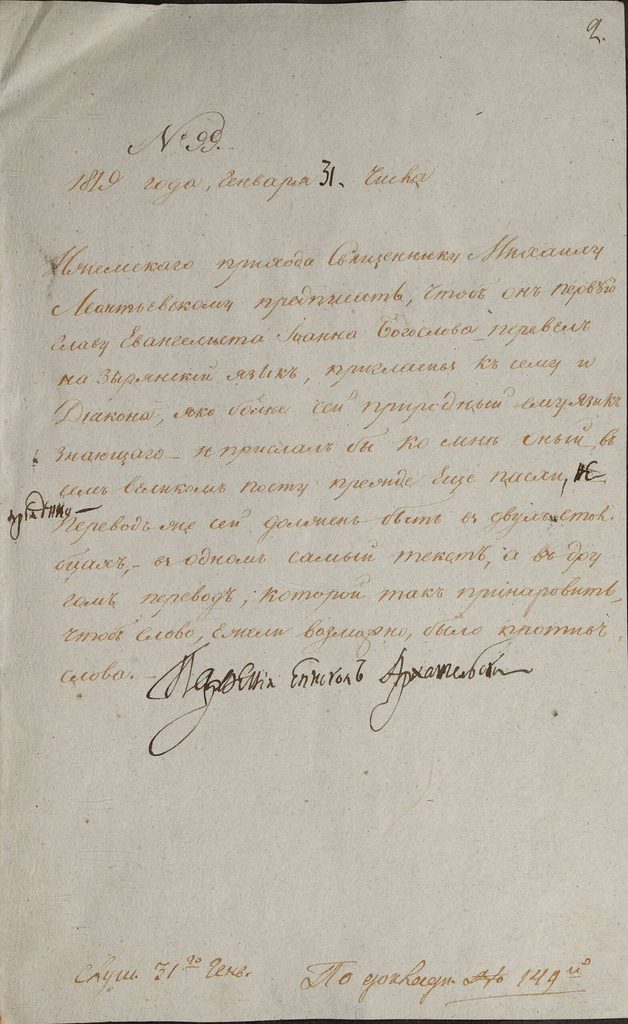 2.
№ 99.
1819 года, Генваря 31. Числа
Ижемского прихода Священнику Михаилу
Леонтьевскому предписать, чтобъ онъ первую
главу Евангелиста Іоанна Богослова перевелъ
на Зырянскій языкъ, пригласивъ къ сему и
Діакона, яко более сей природный ему языкъ
знающаго – и прислалъ бы ко мнѣ оный въ
семъ великомъ посту прежде еще пасхи,
Переводъ же сей долженъ быть въ двухъ стол-
бцахъ, – въ одномъ самый текстъ, а въ дру
гомъ переводъ, которой такъ принаровить,
чтобъ слово, ежели возможно, было противъ
слова. –
Парѳеній Епископъ Архангельскій
Слуш. 31го Генв.
По докладн. № 149й